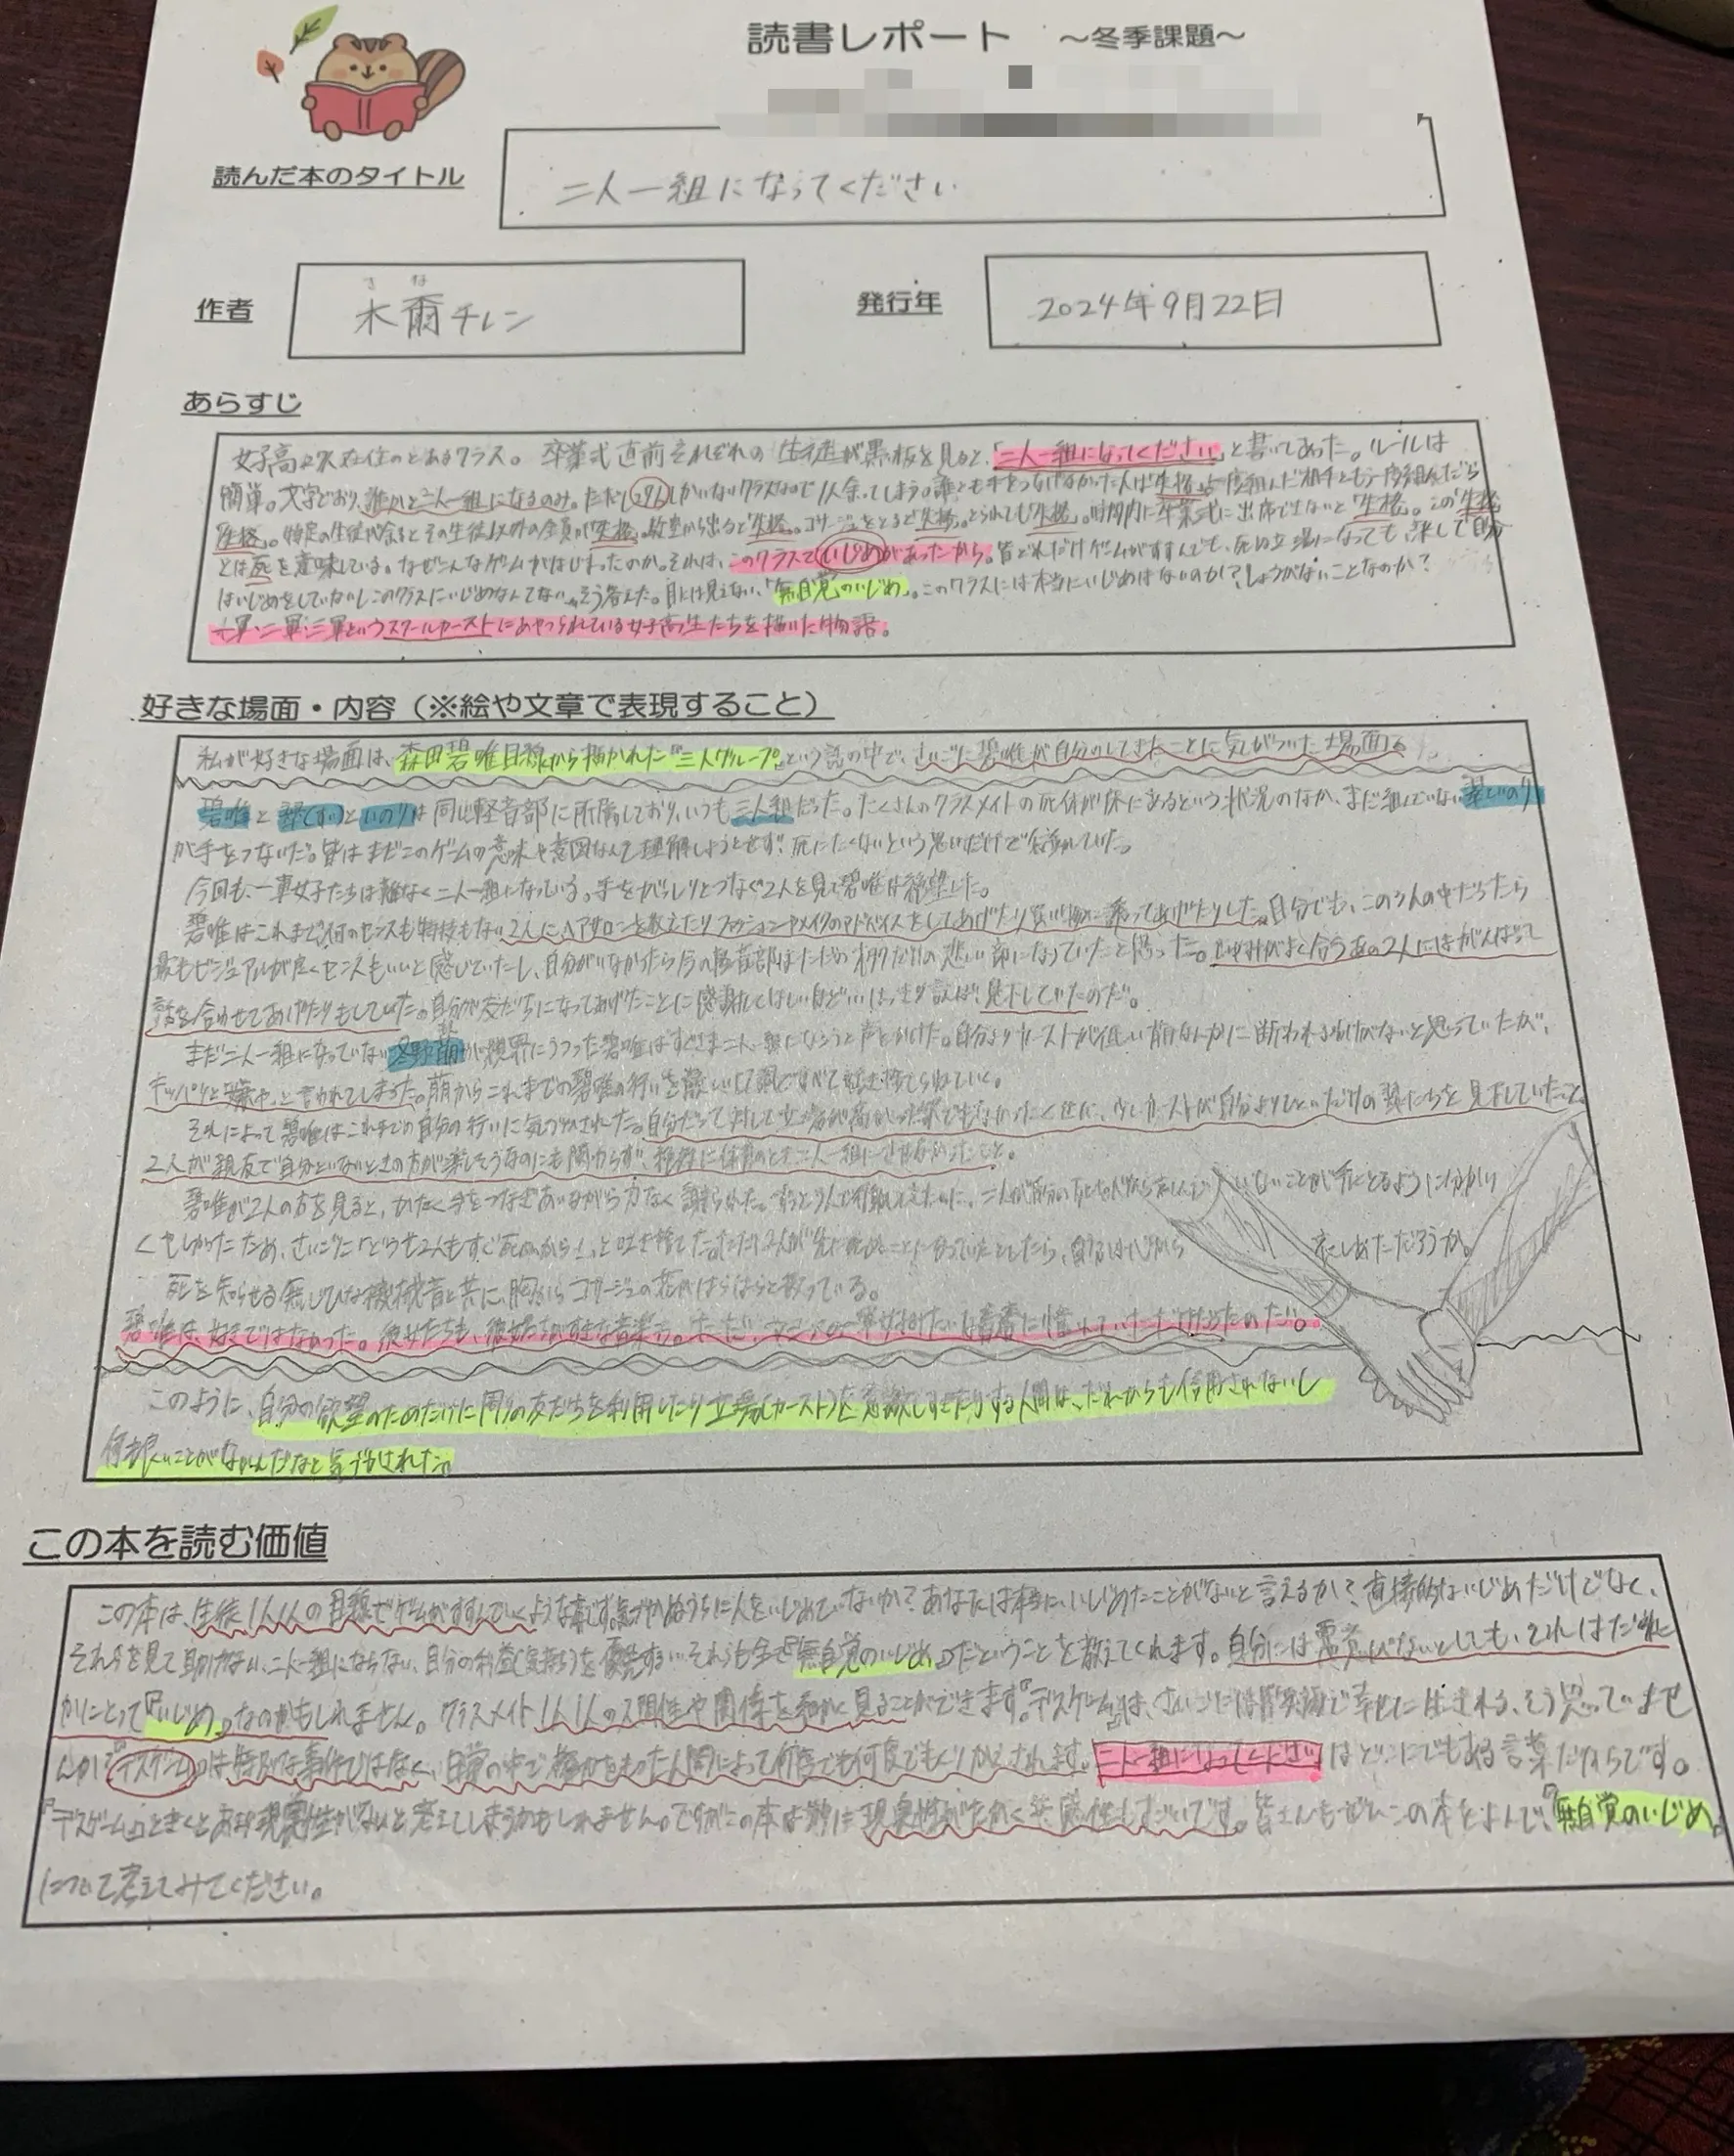 読書レポート ～冬季課題～
読んだ本のタイトル
二人一組になってください
作者
さな
木爾チレン
発行年
2024年9月22日
あらすじ
女子高 在住のとあるクラス。卒業式直前それぞれの生徒が黒板を見ると、「二人一組になってください」と書いてあった。ルールは
簡単。文字どおり、誰かと二人一組になるのみ。ただし27人しかいないクラスなので1人余ってしまう。誰とも手をつなげなかった人は「失格」。一度組んだ相手ともう一度組んだら
「失格」。特定の生徒が余るとその生徒以外の全員が「失格」。教室から出ると「失格」。コサージュをとると「失格」。とられても「失格」。時間内に卒業式に出席できないと「失格」。この「失格」
とは死を意味している。なぜこんなゲームがはじまったのか。それは、このクラスで「いじめ」があったから。皆どれだけゲームがすすんでも、死ぬ立場になっても、決して自分
はいじめをしていないしこのクラスにいじめなんてない。そう答えた。目には見えない、「無自覚のいじめ」。このクラスには本当にいじめはないのか？しょうがないことなのか？
一軍・二軍・三軍というスクールカーストにあやつられている女子高生たちを描いた物語。
好きな場面・内容（※絵や文章で表現すること）
私が好きな場面は、森田碧唯目線から描かれた「三人グループ」という話の中で、さいごに碧唯が自分のしてきたことに気がついた場面
碧唯と翠(すい)といのりは同じ軽音部に所属しており、いつも三人組だった。たくさんのクラスメイトの死体が床にあるという状況のなか、まだ組んでいない翠といのり
が手をつないだ。皆はまだこのゲームの意味や意図なんて理解しようとせず、死にたくないという思いだけで
今回も、一軍女子たちは難なく二人一組になっている。手をがっしりとつなぐ2人を見て碧唯は絶望した。
碧唯はこれまで何のセンスも特技もない2人にヘアサロンを教えたりファッションやメイクのアドバイスをしてあげたり買い物に誘ってあげたりした。自分でも、この3人の中だったら
最もビジュアルが良くセンスもいいと感じていたし、自分がいなかったら今の軽音部はただのオタクだけの悲しい部になっていたと思った。 よく合うあの2人にはがんばって
話を合わせてあげたりもしていた。自分が友だちになってあげたことに感謝してほしいほど… はっきり言えば、見下していたのだ。
まだ二人一組になっていない冬野萌が視界にうつった碧唯はすぐさま二人一組になろうと声をかけた。自分よりカーストが低い萌なんかに断われるわけがないと思っていたが、
キッパリと「嫌や。」と言われてしまった。萌からこれまでの碧唯の行いを激しい口調ですべて吐き捨てられていく。
それによって碧唯はこれまでの自分の行いに気づかされた。自分だって大して立場が高かった訳でもなかったくせに、少しカーストが自分よりひくいだけの翠たちを見下していたこと。
2人が親友で自分といないときの方が楽しそうなのにも関わらず、 二人一組にさせなかったこと。
碧唯が2人の方を見ると、かたく手をつなぎあいながら力なく謝られた。 ないことが手にとるように分かり
くやしかったため、さいごに「どうせ2人もすぐ死ぬから！」と吐き捨てた。
死を知らせる無しひな機械音と共に、胸からコサージュの花がはらはらと散っている。
碧唯は、好きではなかった。彼女たちも、彼女たちが好きな音楽も。ただ、 一軍女子みたいな青春に憧れていただけだったのだ。
このように、自分の欲望のためだけに周りの友だちを利用したり立場(カースト)を意識しすぎたりする人間は、だれからも信用されないし
何も良いことがないんだなと気づかされた。
この本を読む価値
この本は、生徒1人1人の目線でゲームがすすんでいくような本です。気づかぬうちに人をいじめていないか？あなたは本当に、いじめたことがないと言えるか？直接的ないじめだけでなく、
それらを見て助けない、二人一組にならない、自分の利益(気持ち)を優先する… それらも全て「無自覚のいじめ」だということを教えてくれます。自分には悪意がないとしても、それはだれ
かにとって「いじめ」なのかもしれません。クラスメイト1人1人の人間性や関係を細かく見ることができます。「デスゲーム」は、さいごには皆笑顔で幸せに生きれる、そう思っていませ
んか？「デスゲーム」は特別な事件ではなく、日常の中で権力をもった人間によって何度でも何度でもくりかえされます。「二人一組になってください」はどこにでもある言葉だからです。
「デスゲーム」ときくとあまり現実性がないと考えてしまうかもしれません。ですがこの本は逆に現実性がたかく共感性もすごいです。皆さんもぜひこの本をよんで、「無自覚のいじめ」
について考えてみてください。